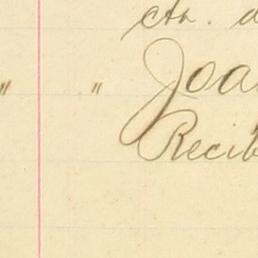 cta. d
" " Joa
Recib